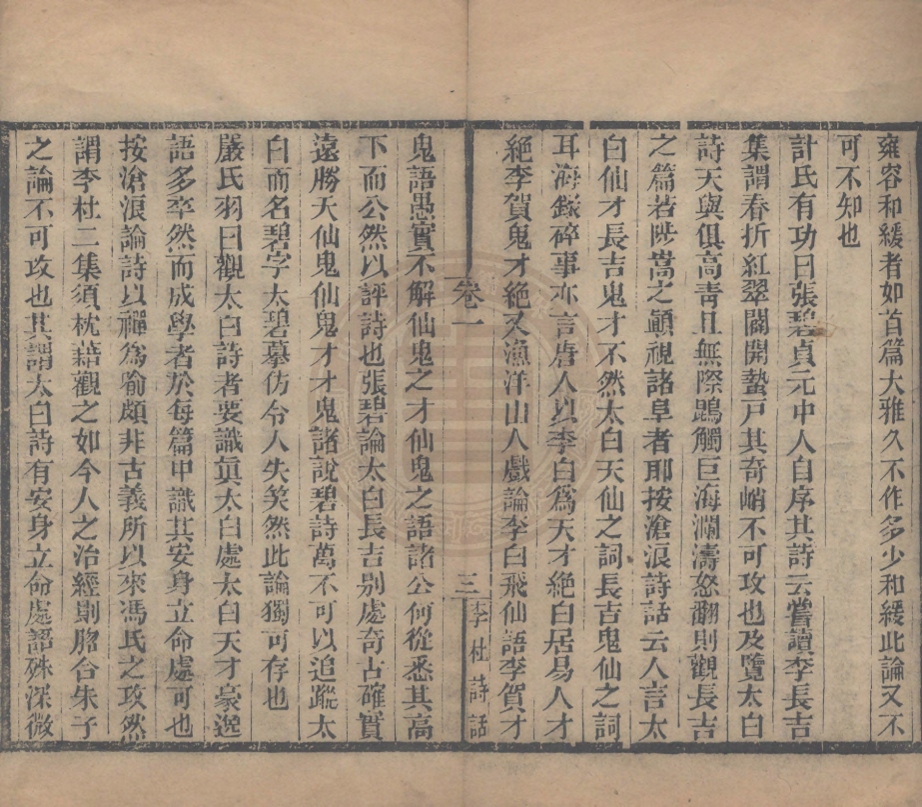 雍容和緩者如首篇大雅久不作多少和緩此論又不
可不知也
計氏有功曰張碧貞元中人自序其詩云嘗讀李長吉
集謂春折紅翠闢開蟄戸其奇峭不可攻也及覽太白
詩天與俱高青且無際鵾觸巨海瀾濤怒翻則觀長吉
之篇若陟嵩之顚視諸阜者耶按滄浪詩話云人言太
白仙才長吉鬼才不然太白天仙之詞長吉鬼仙之詞
耳海錄碎事亦言唐人以李白爲天才絶白居易人才
絶李賀鬼才絶又漁洋山人戲論李白飛仙語李賀才
卷一
三
李杜詩話
鬼語愚實不解仙鬼之才仙鬼之語諸公何從悉其高
下而公然以評詩也張碧論太白長吉别處奇古確實
遠勝天仙鬼仙鬼才才鬼諸說碧詩萬不可以追蹤太
白而名碧字太碧摹仿令人失笑然此論獨可存也
嚴氏羽曰觀太白詩者要識眞太白處太白天才豪逸
語多卒然而成學者於每篇中識其安身立命處可也
按滄浪論詩以禪爲喻頗非古義所以來馮氏之攻然
謂李杜二集須枕藉觀之如今人之治經則脗合朱子
之論不可攻也其謂太白詩有安身立命處語殊深微